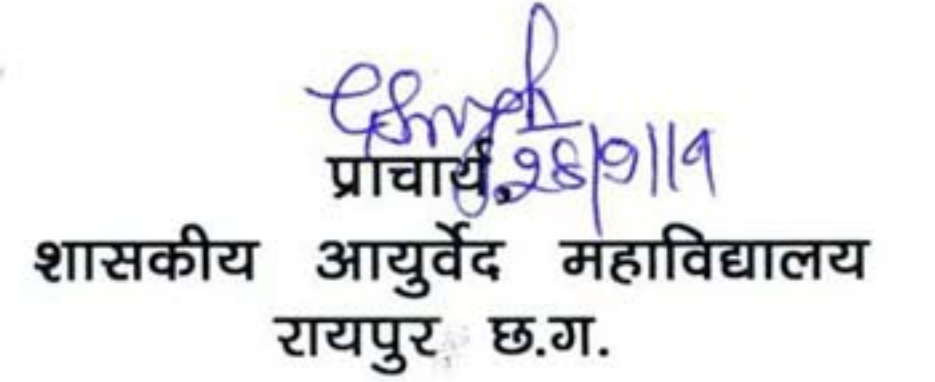 28/9/19
प्राचार्य,
शासकीय आयुर्वेद महाविद्यालय
रायपुर छ.ग.